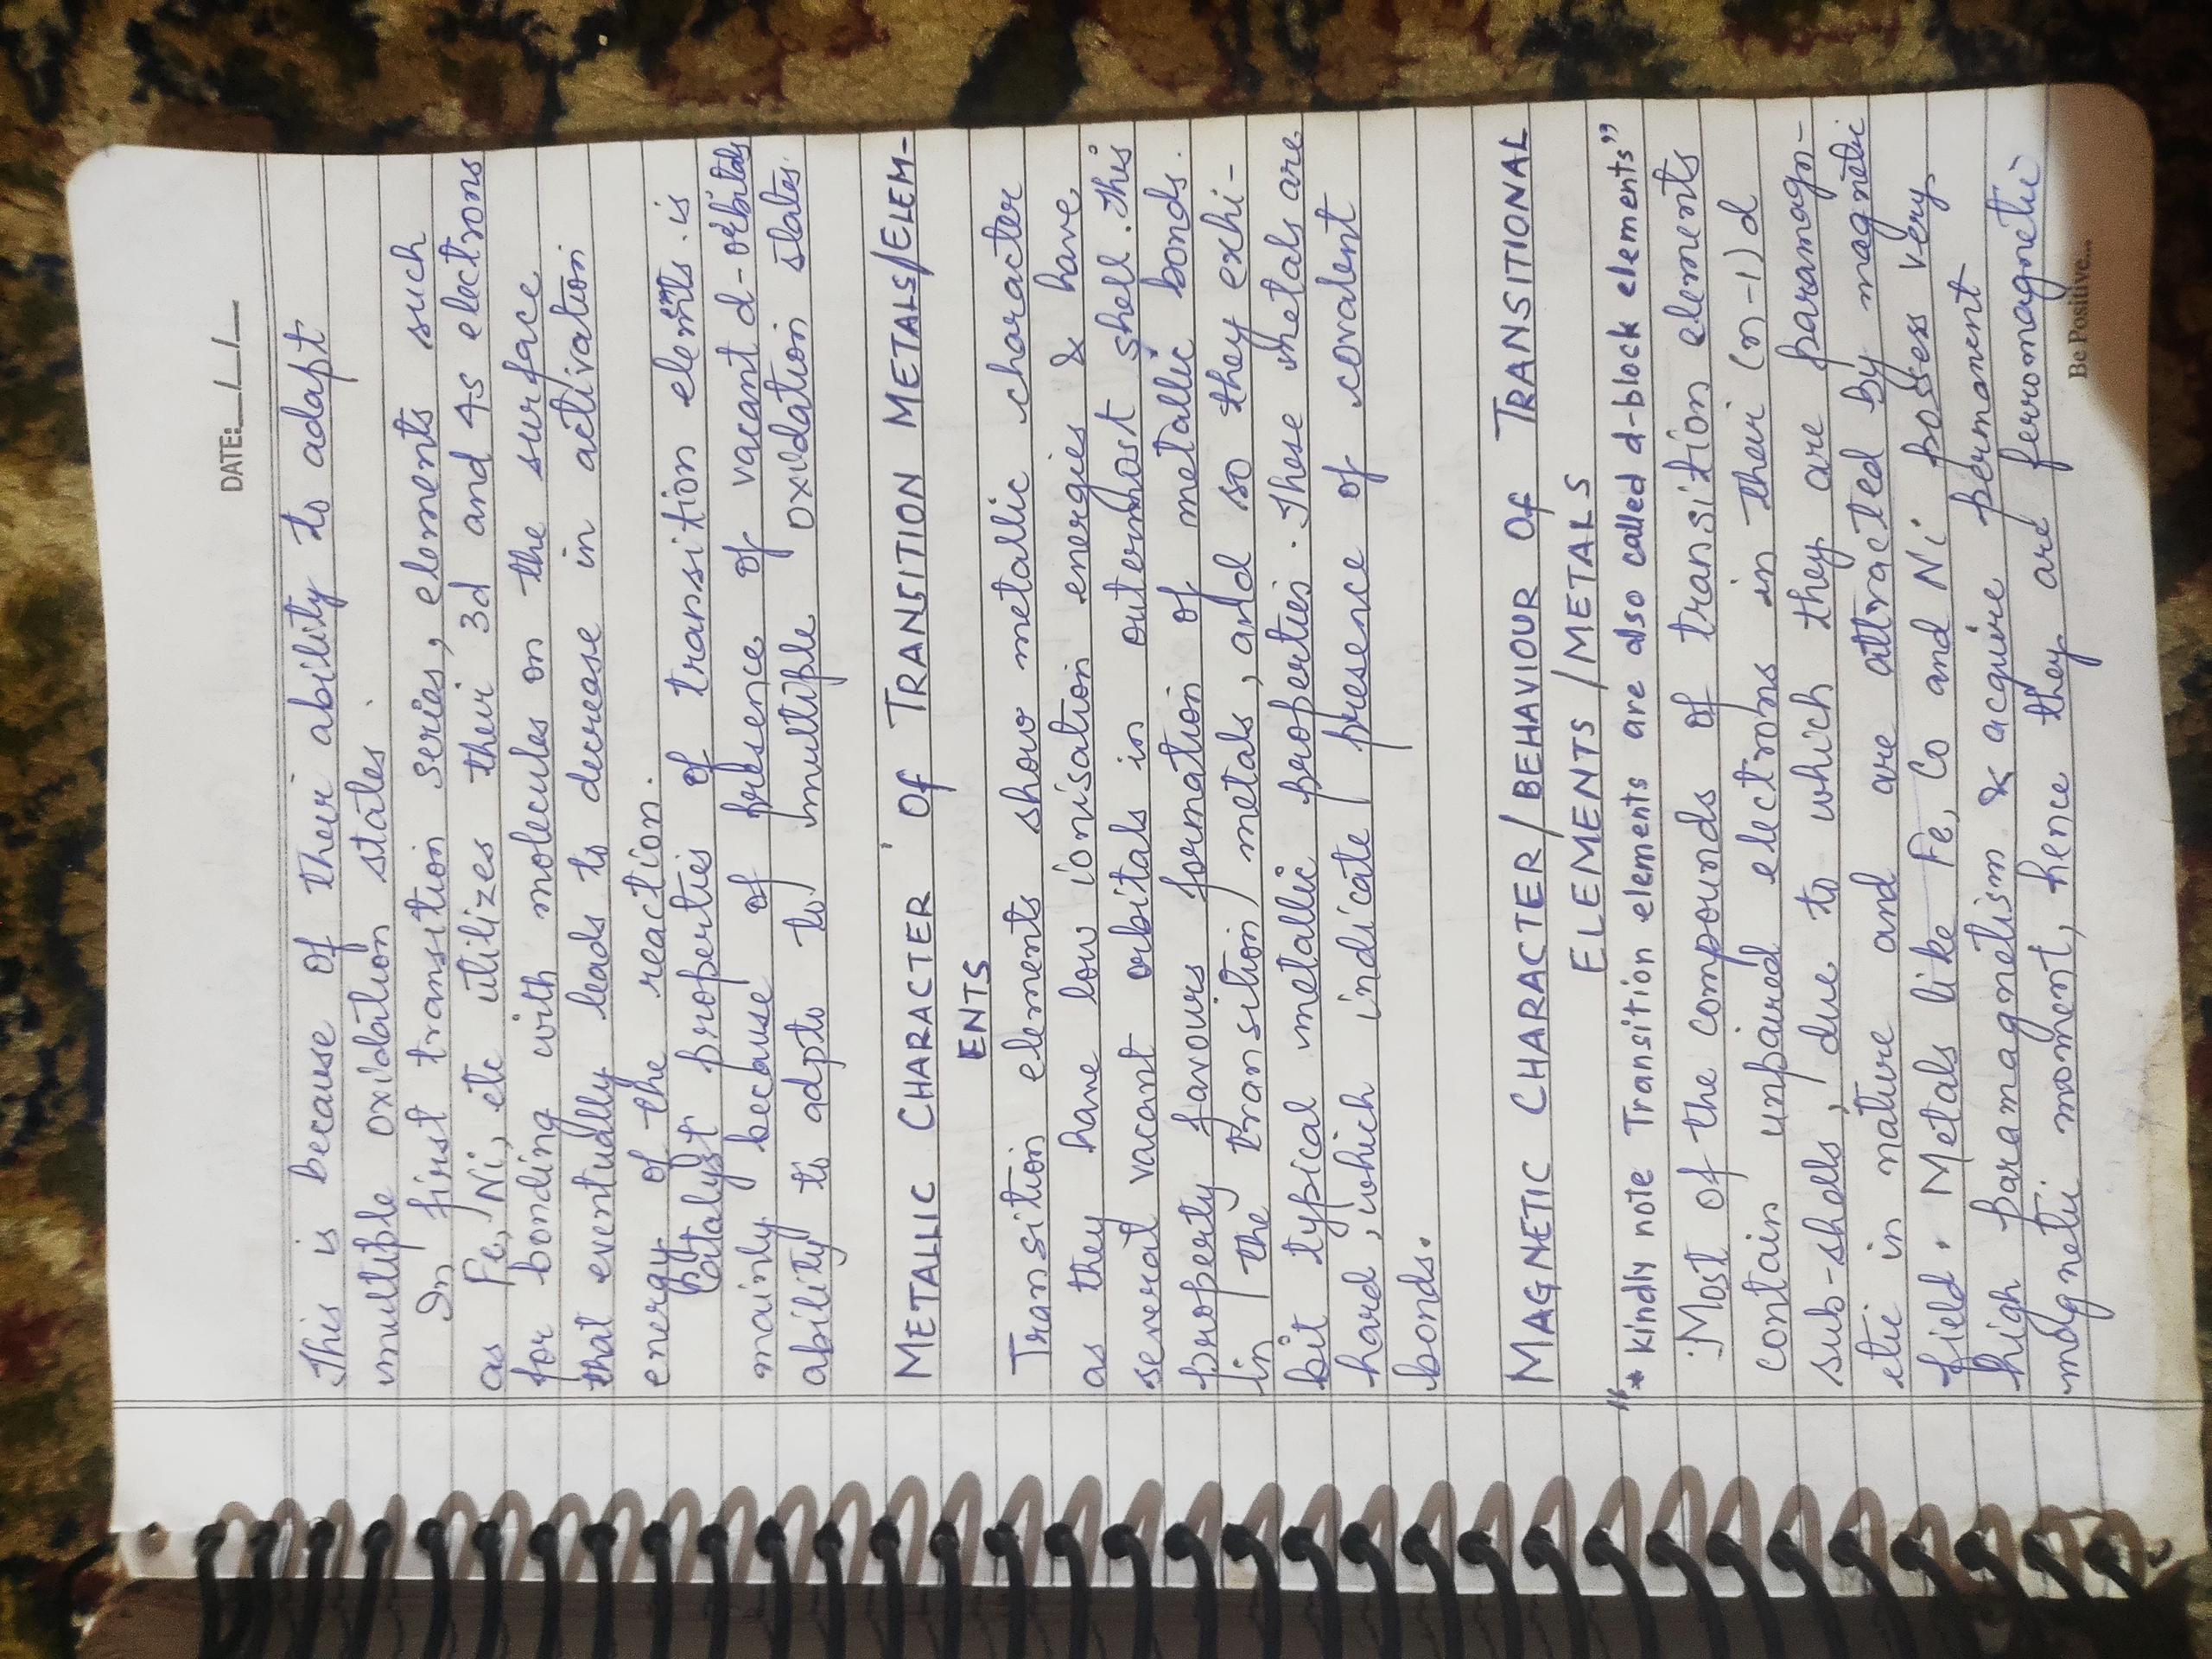 DATE: __/__/__
This is because of their ability to adapt
multiple oxidation states.
In first transition series, elements such
as Fe, Ni, etc utilizes their 3d and 4s electrons
for bonding with molecules on the surface
that eventually leads to decrease in activation
energy of the reaction.
Catalyst properties of transition elemnts is
mainly because of presence of vacant d-orbitals
ability to adpto to multiple oxidation states.
METALLIC CHARACTER OF TRANSITION METALS/ELEM-
ENTS
Transition elements show metallic character
as they have low ionisation energies & have
several vacant orbitals in outermost shell. This
property favours formation of metallic bonds.
in the transition metals, and so they exhi-
bit typical metallic properties. These metals are
hard, which indicate presence of covalent
bonds.
MAGNETIC CHARACTER/BEHAVIOUR OF TRANSITIONAL
ELEMENTS/METALS
"* kindly note Transition elements are also called d-block elements"
Most of the compounds of transition elements
contain unpaired electrons in their (n-1)d
sub-shells, due to which they are paramagn-
etic in nature and are attracted by magnetic
field. Metals like Fe, Co and Ni posess very
high paramagnetism & acquire permanent
magnetic moment, hence they are ferromagnetic
Be Positive...